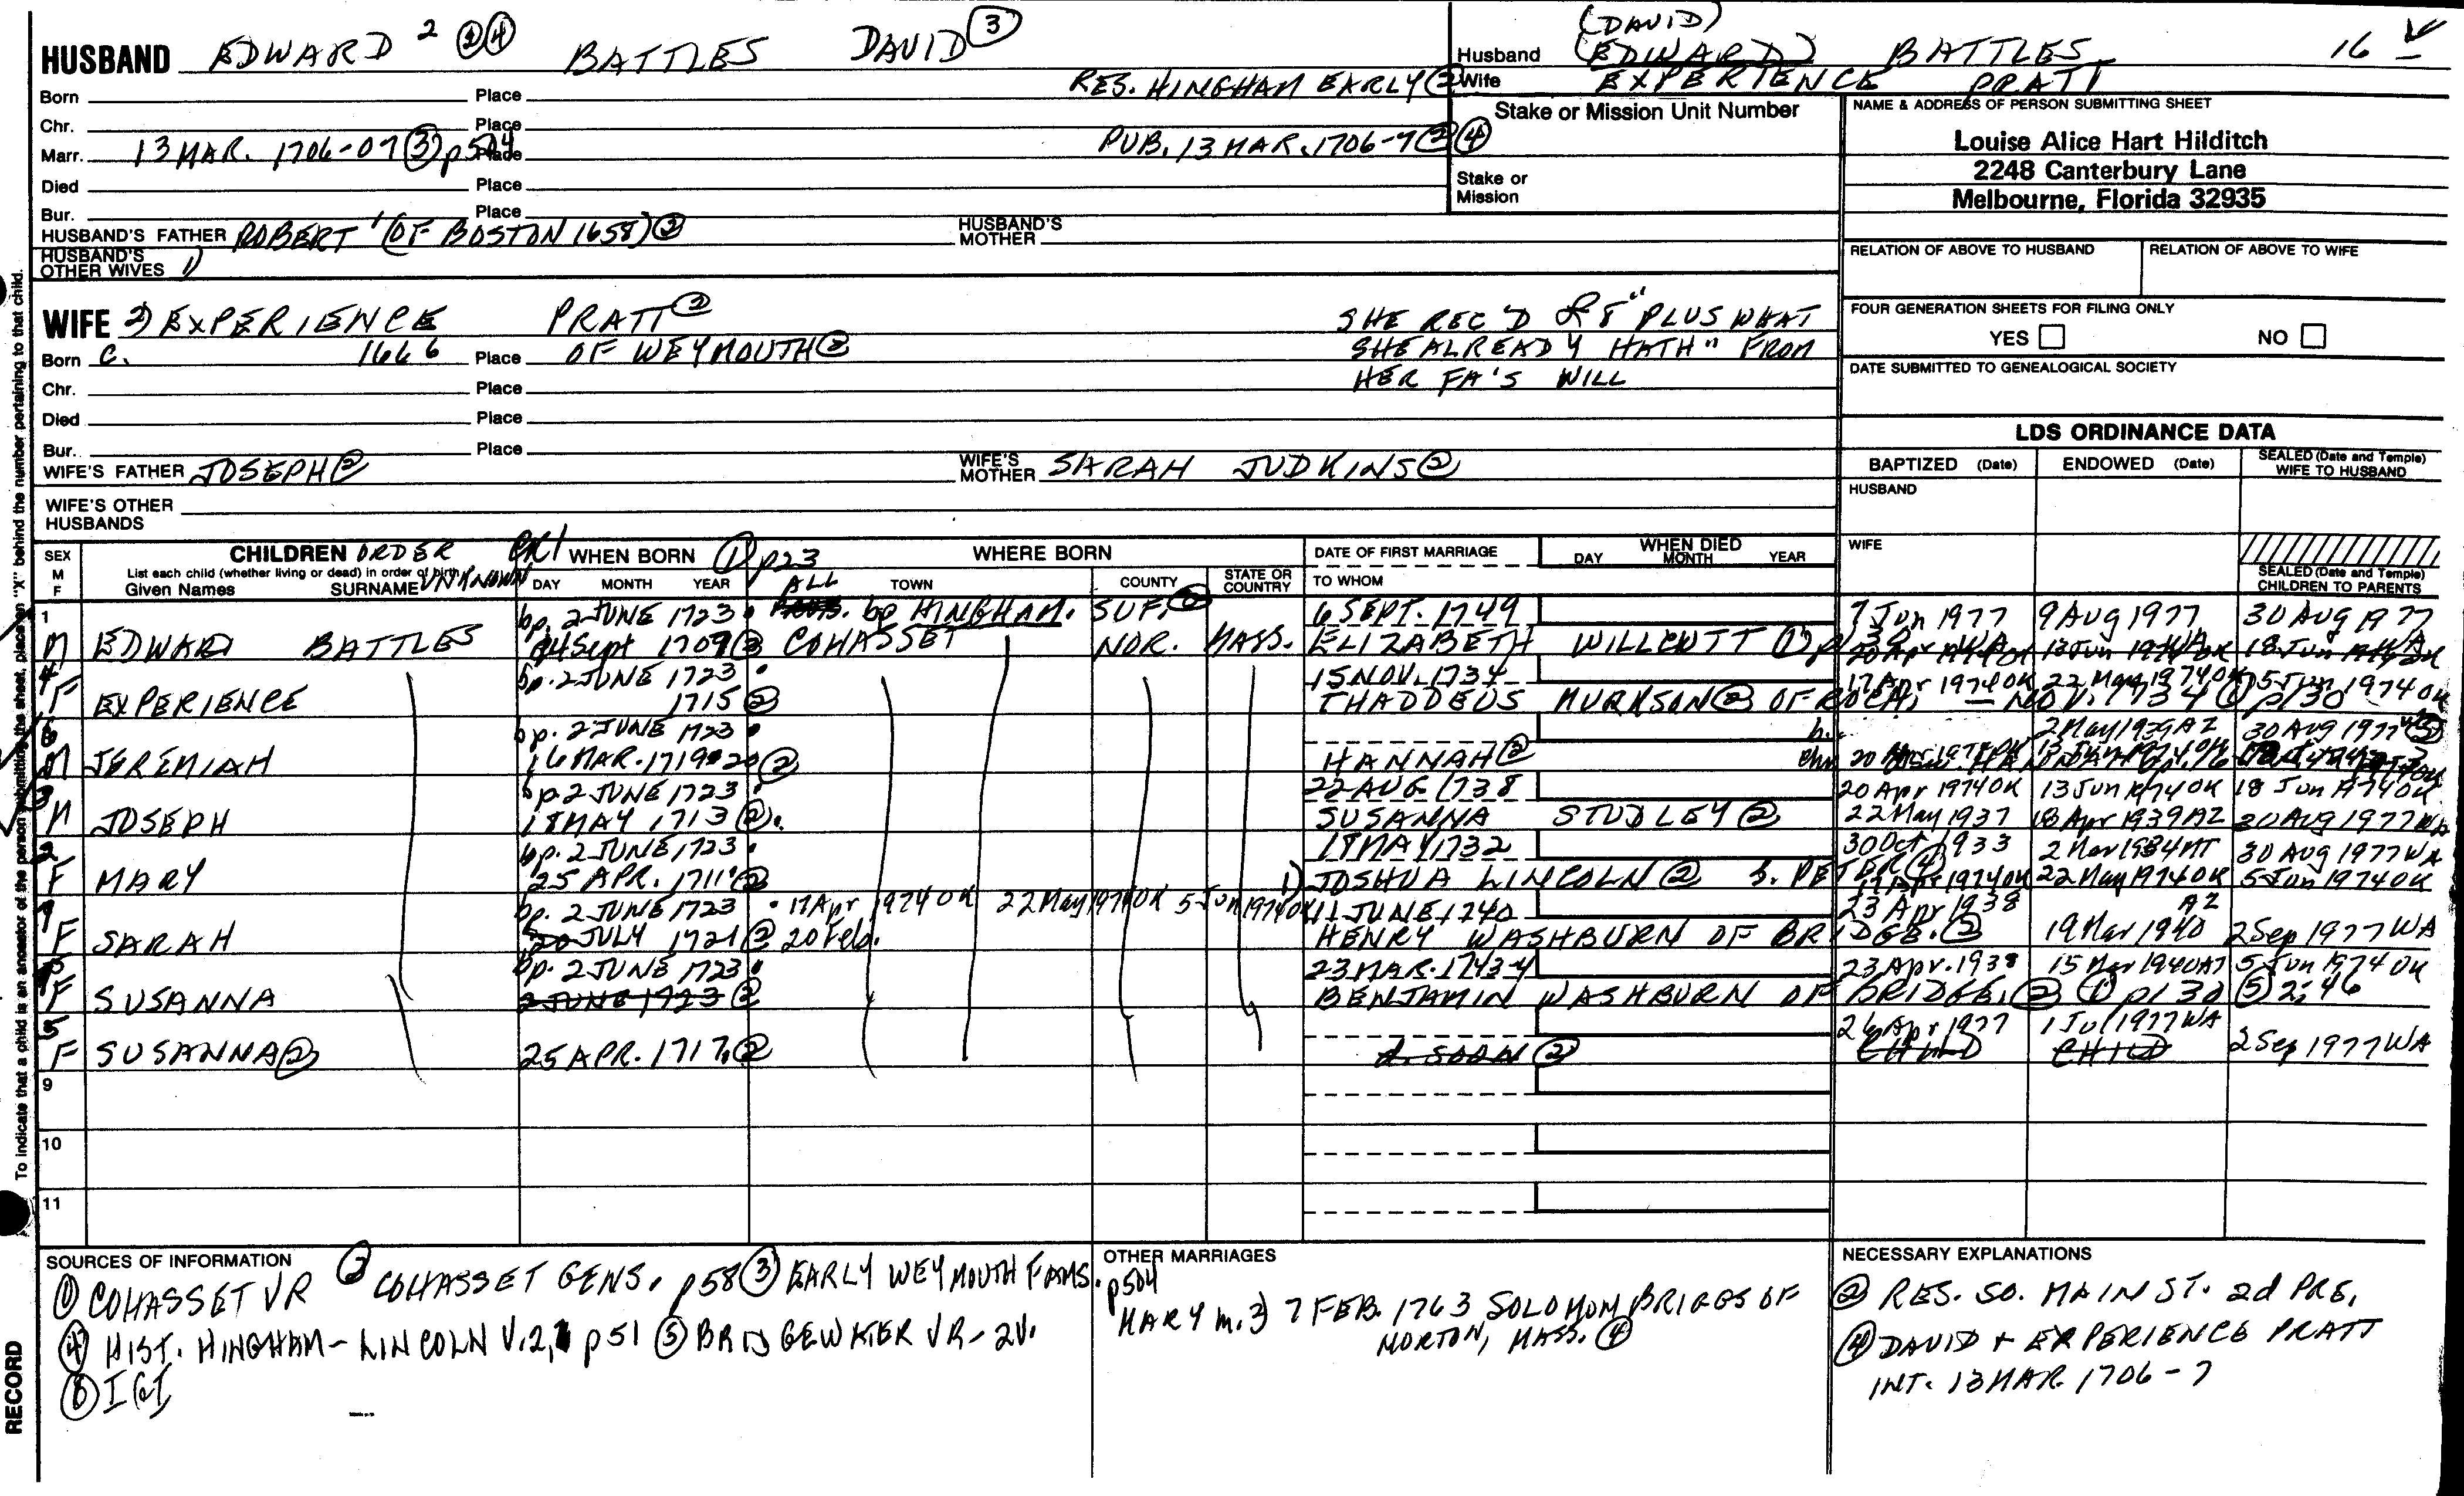 HUSBAND EDWARD 2 ②④ BATTLES DAVID ③
Born Place RES. HINGHAM EARLY ②
Chr. Place
Marr. 13 MAR. 1706-07 ③ p504 Place PUB. 13 MAR. 1706-7 ② ④
Died Place
Bur. Place
HUSBAND'S FATHER ROBERT 1 (OF BOSTON 1658) ② HUSBAND'S MOTHER
HUSBAND'S OTHER WIVES 1)
Husband (DAVID) (EDWARD) BATTLES 16
Wife EXPERIENCE PRATT
Stake or Mission Unit Number
Stake or Mission
NAME & ADDRESS OF PERSON SUBMITTING SHEET
Louise Alice Hart Hilditch
2248 Canterbury Lane
Melbourne, Florida 32935
RELATION OF ABOVE TO HUSBAND RELATION OF ABOVE TO WIFE
FOUR GENERATION SHEETS FOR FILING ONLY
YES NO
DATE SUBMITTED TO GENEALOGICAL SOCIETY
WIFE 2) EXPERIENCE PRATT ②
Born C. 1686 Place OF WEYMOUTH ②
SHE REC'D £5 "PLUS WHAT
SHE ALREADY HATH" FROM
HER FA'S WILL
Chr. Place
Died Place
Bur. Place
WIFE'S FATHER JOSEPH ② WIFE'S MOTHER SARAH JUDKINS ②
WIFE'S OTHER HUSBANDS
LDS ORDINANCE DATA
BAPTIZED (Date) ENDOWED (Date) SEALED (Date and Temple) WIFE TO HUSBAND
HUSBAND
WIFE
SEALED (Date and Temple) CHILDREN TO PARENTS
SEX M F
CHILDREN ORDER UNKNOWN
List each child (whether living or dead) in order of birth
Given Names SURNAME
WHEN BORN ① p23
DAY MONTH YEAR
WHERE BORN
ALL TOWN COUNTY STATE OR COUNTRY
DATE OF FIRST MARRIAGE
TO WHOM
WHEN DIED
DAY MONTH YEAR
1 bp. 2 JUNE 1723 bp HINGHAM. SUF. 6 SEPT. 1749 7 Jun 1977 9 AUG 1977 30 AUG 1977
M EDWARD BATTLES 24 Sept 1709 ② COHASSET NOR. MASS. ELIZABETH WILLCUTT ①
4 bp. 2 JUNE 1723 15 NOV. 1734 17 Apr 1974 OK 22 May 1974 OK 5 Jun 1974 OK
F EXPERIENCE 1715 ② THADDEUS ② OF ROCH. — NOV. 1734 ① p130
6 bp. 2 JUNE 1723 2 May 1939 AZ 30 AUG 1977
M JEREMIAH 16 MAR. 1719-20 ② HANNAH ②
3 bp 2 JUNE 1723 22 AUG 1738 20 Apr 1974 OK 13 Jun 1974 OK 18 Jun 1974 OK
M JOSEPH 18 MAY 1713 ② SUSANNA STUDLEY ② 22 May 1937 18 Apr 1939 AZ 30 AUG 1977 WA
2 bp. 2 JUNE 1723 18 MAY 1732 30 Oct 1933 30 AUG 1977 WA
F MARY 25 APR. 1711 ② 1) JOSHUA LINCOLN ② S. PETER ④ 17 Apr 1974 OK 22 May 1974 OK 5 Jun 1974 OK
7 bp. 2 JUNE 1723 17 Apr 1974 OK 22 May 1974 OK 5 Jun 1974 OK 11 JUNE 1740 23 Apr 1938 AZ
F SARAH 20 JULY 1721 ② 20 Feb. HENRY WASHBURN OF BRIDGE. ② 19 Mar 1940 2 Sep 1977 WA
8 bp. 2 JUNE 1723 23 MAR. 1743-4 23 Apr. 1938 15 Mar 1940 AZ 5 Jun 1974 OK
F SUSANNA 2 JUNE 1723 ② BENJAMIN WASHBURN OF BRIDGE. ② ① p130 ⑤ 2:46
5 26 Apr 1977 1 Jul 1977 WA
F SUSANNA ② 25 APR. 1717 ② d. SOON ② CHILD CHILD 2 Sep 1977 WA
9
10
11
To indicate that a child is an ancestor of the person submitting the sheet, place an "X" behind the number pertaining to that child.
RECORD
SOURCES OF INFORMATION
① COHASSET VR ② COHASSET GENS. p58 ③ EARLY WEYMOUTH FAMS. p504
④ HIST. HINGHAM - LINCOLN V.2, p51 ⑤ BRIDGEWATER VR - 2V.
⑥ IGI
OTHER MARRIAGES
MARY m. 3) 7 FEB. 1763 SOLOMON BRIGGS OF
NORTON, MASS. ④
NECESSARY EXPLANATIONS
② RES. SO. MAIN ST. 2d PRE.
④ DAVID + EXPERIENCE PRATT
INT. 13 MAR. 1706-7